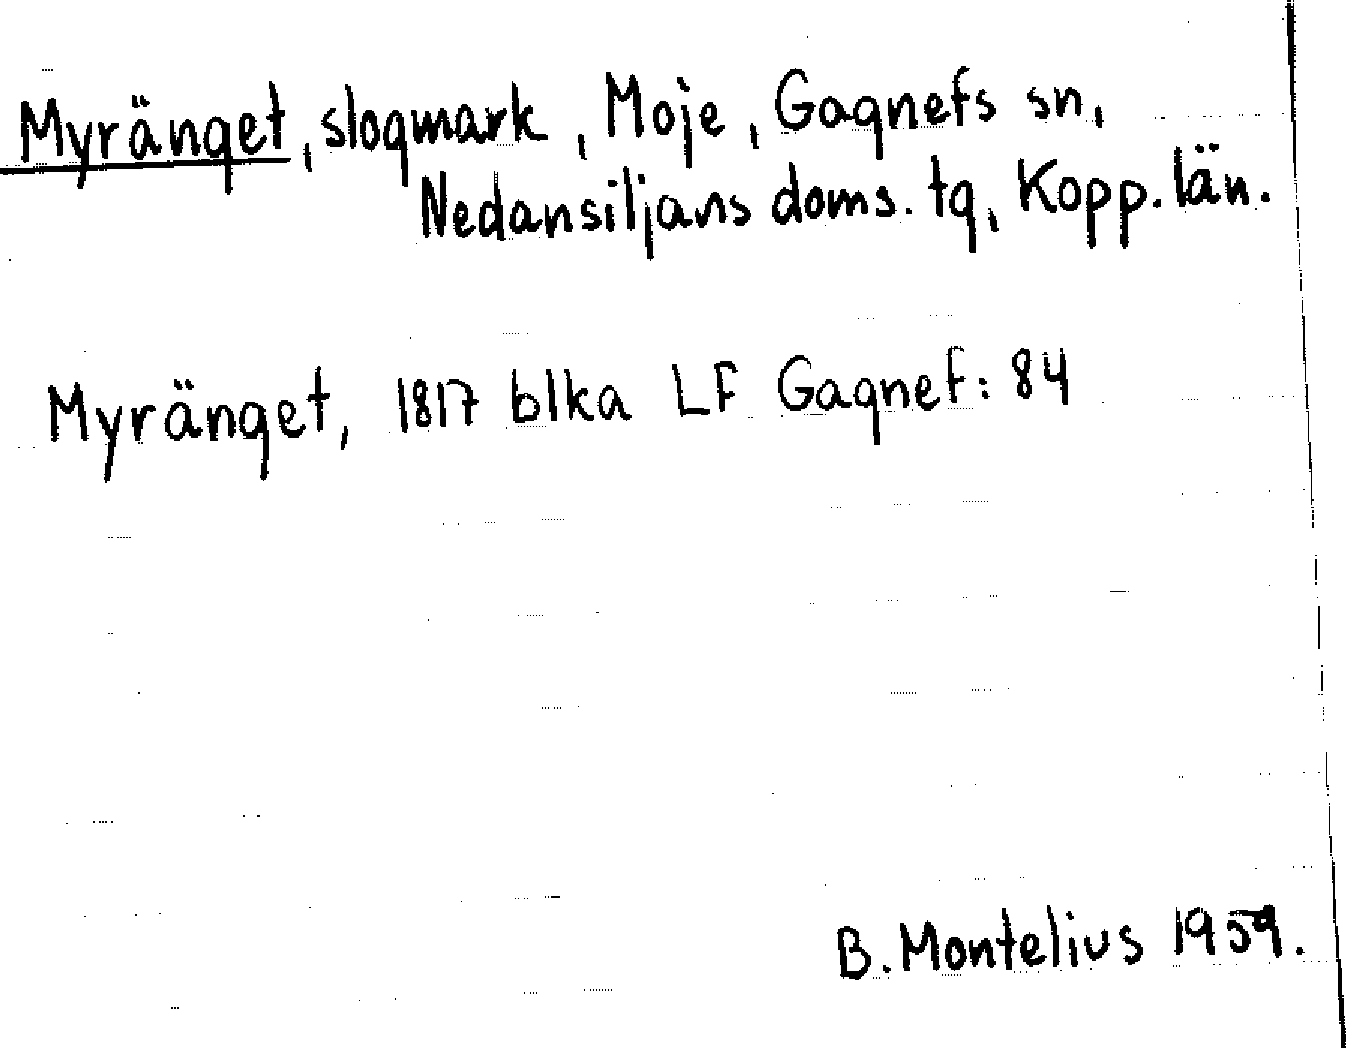 Myränget, slogmark, Moje, Gagnefs sn,
Nedansiljans doms. tg, Kopp. län.
Myränget, 1817 blka LF Gagnef: 84
B. Montelius 1959.